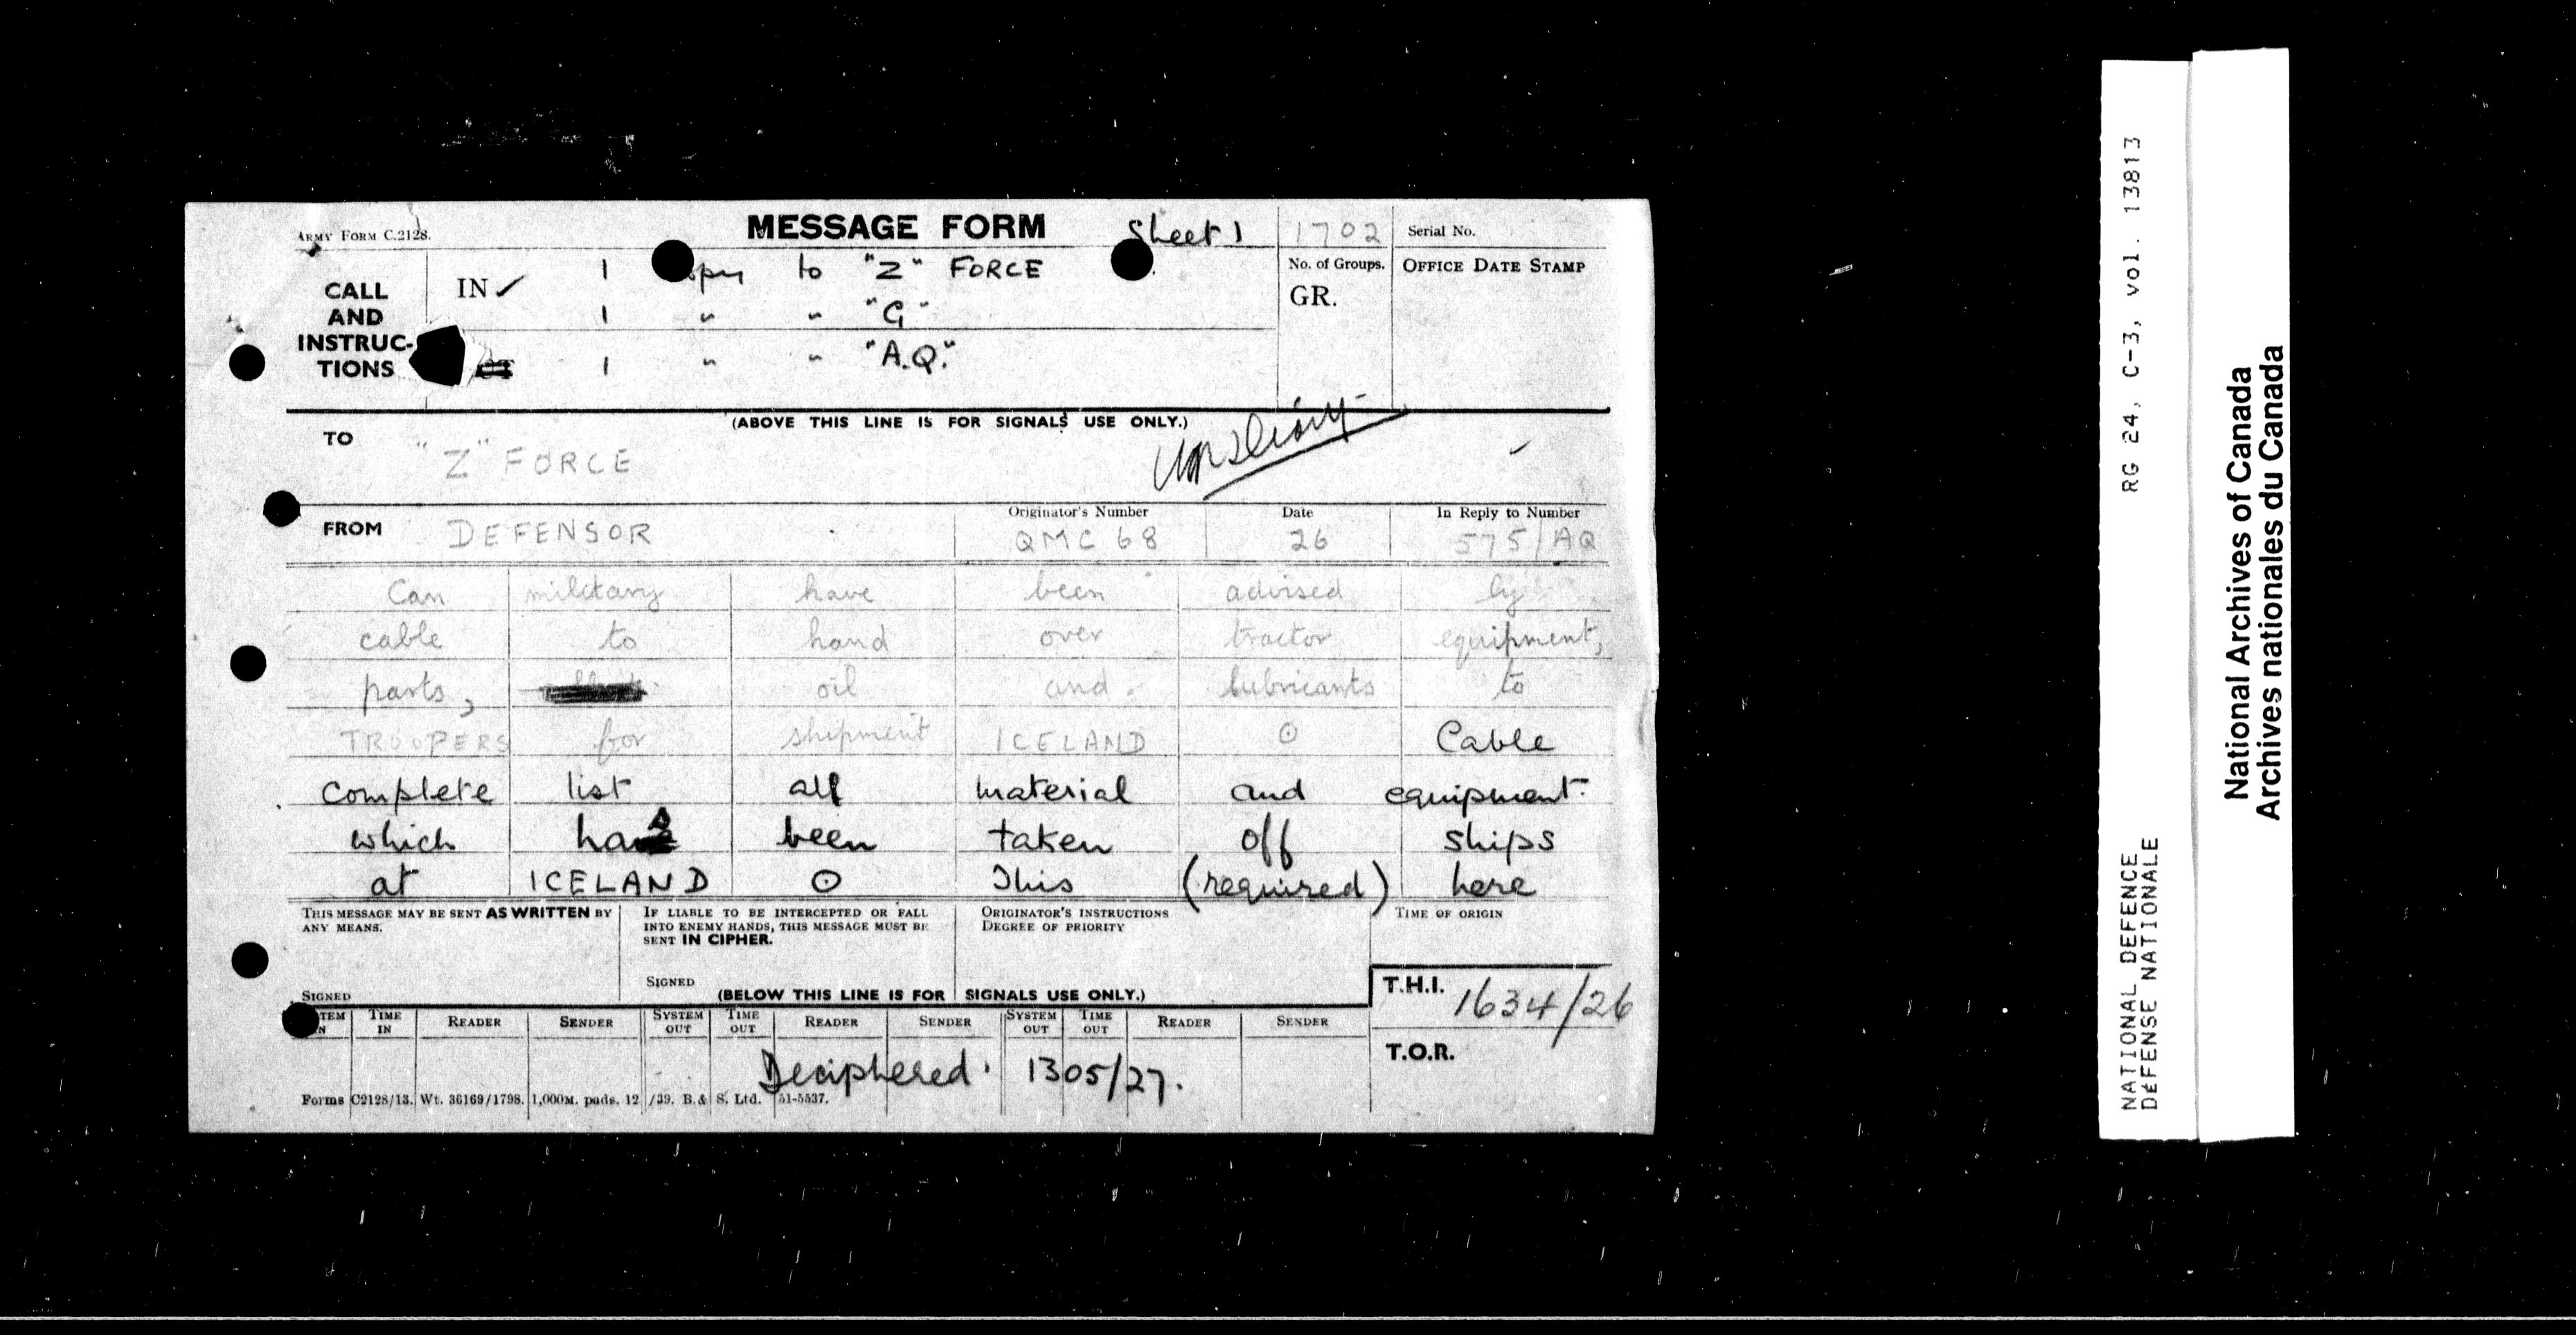 ARMY FORM C.2128.
MESSAGE FORM
Sheet 1
1702
Serial No.
CALL AND INSTRUC-TIONS
IN ✓
1 to "Z" FORCE
1 " " "G"
1 " " "A.Q."
No. of Groups.
GR.
OFFICE DATE STAMP
(ABOVE THIS LINE IS FOR SIGNALS USE ONLY.)
TO "Z" FORCE
FROM DEFENSOR
Originator's Number
QMC 68
Date
26
In Reply to Number
575/AQ
Can military have been advised by
cable to hand over tractor equipment,
parts, oil and lubricants to
TROOPERS for shipment ICELAND ⊙ Cable
complete list all material and equipment
which has been taken off ships
at ICELAND ⊙ This (required) here
THIS MESSAGE MAY BE SENT AS WRITTEN BY
ANY MEANS.
SIGNED
IF LIABLE TO BE INTERCEPTED OR FALL
INTO ENEMY HANDS, THIS MESSAGE MUST BE
SENT IN CIPHER.
SIGNED
ORIGINATOR'S INSTRUCTIONS
DEGREE OF PRIORITY
TIME OF ORIGIN
(BELOW THIS LINE IS FOR SIGNALS USE ONLY.)
T.H.I. 1634/26
T.O.R.
TIME IN READER SENDER SYSTEM OUT TIME OUT READER SENDER SYSTEM OUT TIME OUT READER SENDER
Deciphered 1305/27.
Forms C2128/13. Wt. 36169/1798. 1,000M. pads. 12/39. B.& S. Ltd. 51-5537.
RG 24, C-3, vol. 13813
NATIONAL DEFENCE
DÉFENSE NATIONALE
National Archives of Canada
Archives nationales du Canada